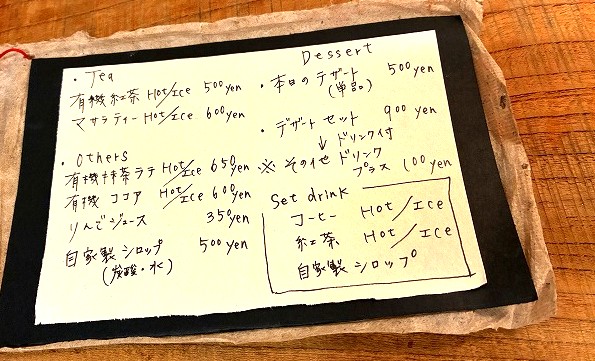 ・Tea
有機紅茶 Hot/Ice 500yen
マサラティー Hot/Ice 600yen
・Others
有機抹茶ラテ Hot/Ice 650yen
有機ココア Hot/Ice 600yen
りんごジュース 350yen
自家製シロップ 500yen
(炭酸・水)
Dessert
・本日のデザート 500yen
(単品)
・デザートセット 900yen
↓ドリンク付
※その他ドリンク
プラス 100yen
Set drink
コーヒー Hot/Ice
紅茶 Hot/Ice
自家製シロップ